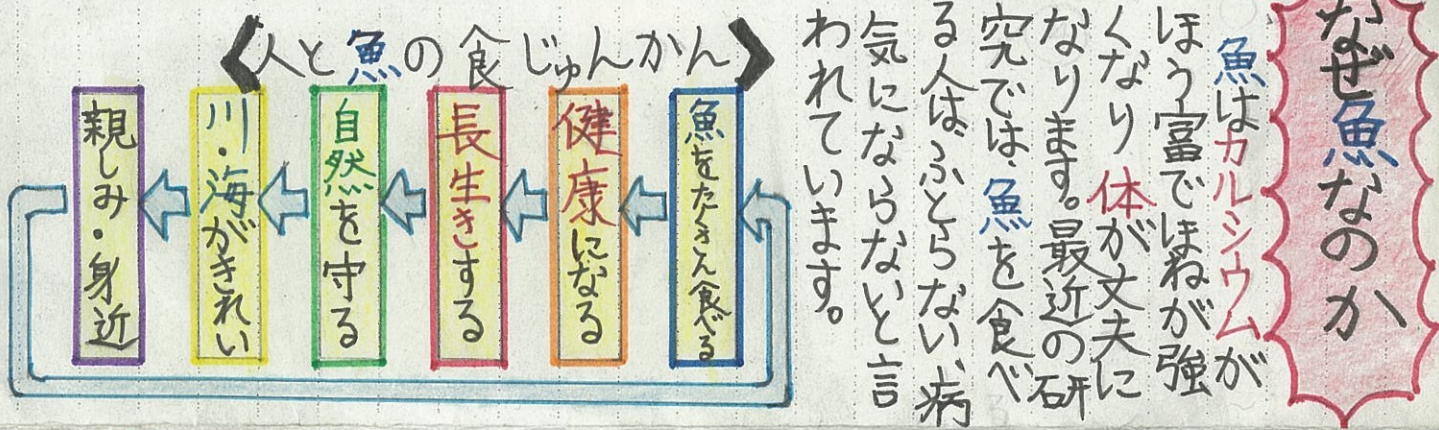 なぜ魚なのか
魚はカルシウムが
ほう富でほねが強
くなり体が丈夫に
なります。最近の研
究では、魚を食べ
る人は、ふとらない、病
気にならないと言
われています。
《人と魚の食じゅんかん》
魚をたくさん食べる
健康になる
長生きする
自然を守る
川・海がきれい
親しみ・身近